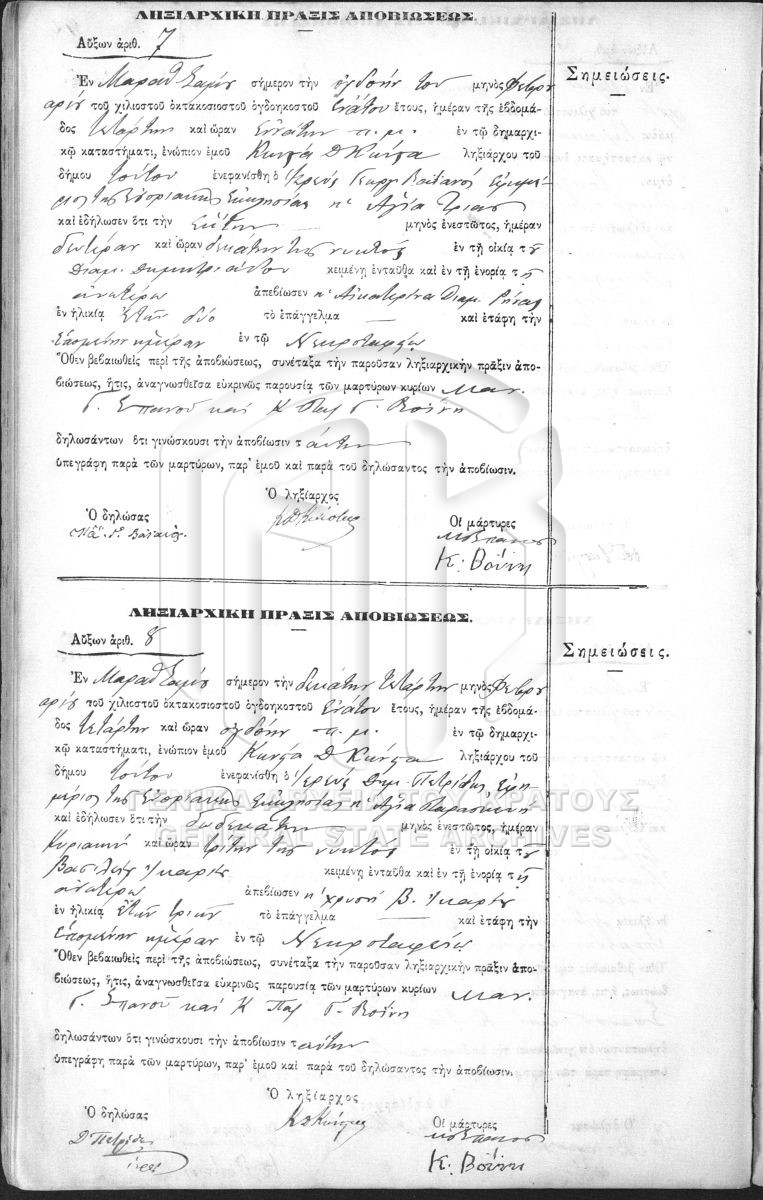 ΛΗΞΙΑΡΧΙΚΗ ΠΡΑΞΙΣ ΑΠΟΒΙΩΣΕΩΣ.
Αὔξων ἀριθ. 7
Σημειώσεις.
Ἐν σήμερον τὴν ὀγδόην τοῦ μηνὸς Φεβρου
αρίου τοῦ χιλιοστοῦ ὀκτακοσιοστοῦ ὀγδοηκοστοῦ ἐνάτου ἔτους, ἡμέραν τῆς ἑβδομά-
δος Τετάρτην καὶ ὥραν ἐννάτην π.μ. ἐν τῷ δημαρχι-
κῷ καταστήματι, ἐνώπιον ἐμοῦ Δ ληξιάρχου τοῦ
δήμου τούτου ἐνεφανίσθη ὁ ἱερεὺς Γεωργ. ἐφημέ-
ριος τῆς ἐνοριακῆς ἐκκλησίας ἡ Ἁγία Τριὰς
καὶ ἐδήλωσεν ὅτι τὴν ἕκτην μηνὸς ἐνεστῶτος, ἡμέραν
δευτέραν καὶ ὥραν δεκάτην τῆς νυκτὸς ἐν τῇ οἰκίᾳ τοῦ
κειμένῃ ἐνταῦθα καὶ ἐν τῇ ἐνορίᾳ τῇ
ἀνωτέρω ἀπεβίωσεν ἡ Αἰκατερίνα Διαμ.
ἐν ἡλικίᾳ ἐτῶν δύο τὸ ἐπάγγελμα — καὶ ἐτάφη τὴν
ἑπομένην ἡμέραν ἐν τῷ Νεκροταφείῳ
Ὅθεν βεβαιωθεὶς περὶ τῆς ἀποβιώσεως, συνέταξα τὴν παροῦσαν ληξιαρχικὴν πρᾶξιν ἀπο-
βιώσεως, ἥτις, ἀναγνωσθεῖσα εὐκρινῶς παρουσίᾳ τῶν μαρτύρων κυρίων Μαν.
Γ. Σπανοῦ καὶ Κ Παγ Γ. Βοΐνη
δηλωσάντων ὅτι γινώσκουσι τὴν ἀποβίωσιν ταύτην
ὑπεγράφη παρὰ τῶν μαρτύρων, παρ' ἐμοῦ καὶ παρὰ τοῦ δηλώσαντος τὴν ἀποβίωσιν.
Ὁ ληξίαρχος
Ὁ δηλώσας
Οἱ μάρτυρες
Κ. Βοΐνη
ΛΗΞΙΑΡΧΙΚΗ ΠΡΑΞΙΣ ΑΠΟΒΙΩΣΕΩΣ.
Αὔξων ἀριθ. 8
Σημειώσεις.
Ἐν σήμερον τὴν δεκάτην τετάρτην μηνὸς Φεβρου
αρίου τοῦ χιλιοστοῦ ὀκτακοσιοστοῦ ὀγδοηκοστοῦ ἐνάτου ἔτους, ἡμέραν τῆς ἑβδομά-
δος Τετάρτην καὶ ὥραν ὀγδόην π.μ. ἐν τῷ δημαρχι-
κῷ καταστήματι, ἐνώπιον ἐμοῦ Δ ληξιάρχου τοῦ
δήμου τούτου ἐνεφανίσθη ὁ ἱερεὺς Δημ. Πετρίδης ἐφη
μέριος τῆς ἐνοριακῆς ἐκκλησίας ἡ Ἁγία Παρασκευὴ
ΓΕΝΙΚΑ ΑΡΧΕΙΑ ΤΟΥ ΚΡΑΤΟΥΣ
καὶ ἐδήλωσεν ὅτι τὴν δωδεκάτην μηνὸς ἐνεστῶτος, ἡμέραν
GENERAL STATE ARCHIVES
Κυριακὴν καὶ ὥραν τρίτην τῆς νυκτὸς ἐν τῇ οἰκίᾳ τοῦ
Βασιλείου Ἰκαρίου κειμένῃ ἐνταῦθα καὶ ἐν τῇ ἐνορίᾳ τῇ
ἀνωτέρω ἀπεβίωσεν ἡ Χρυσῆ Β. Ἰκαρίου
ἐν ἡλικίᾳ ἐτῶν τριῶν τὸ ἐπάγγελμα — καὶ ἐτάφη τὴν
ἑπομένην ἡμέραν ἐν τῷ Νεκροταφείῳ
Ὅθεν βεβαιωθεὶς περὶ τῆς ἀποβιώσεως, συνέταξα τὴν παροῦσαν ληξιαρχικὴν πρᾶξιν ἀπο-
βιώσεως, ἥτις, ἀναγνωσθεῖσα εὐκρινῶς παρουσίᾳ τῶν μαρτύρων κυρίων Μαν.
Γ. Σπανοῦ καὶ Κ Παγ Γ. Βοΐνη
δηλωσάντων ὅτι γινώσκουσι τὴν ἀποβίωσιν ταύτην
ὑπεγράφη παρὰ τῶν μαρτύρων, παρ' ἐμοῦ καὶ παρὰ τοῦ δηλώσαντος τὴν ἀποβίωσιν.
Ὁ ληξίαρχος
Ὁ δηλώσας
Οἱ μάρτυρες
Δ Πετρίδης
Κ. Βοΐνη